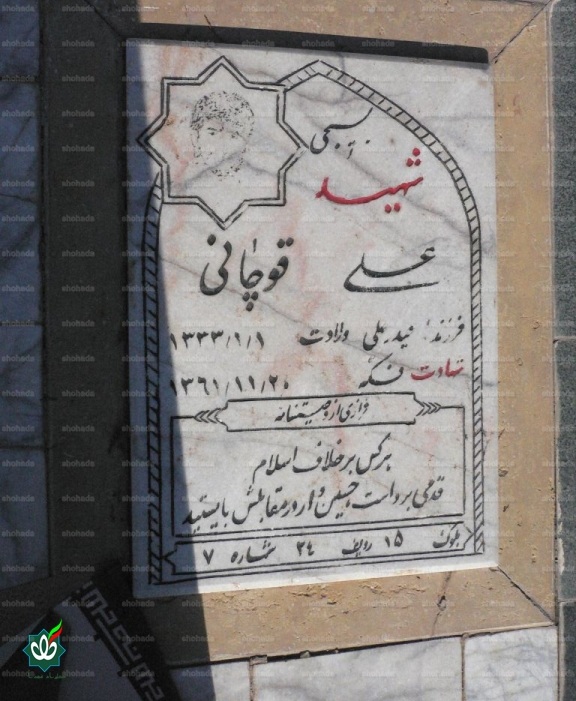 بسیجی
شهید
علی قوچانی
فرزند: ولادت ۱۳۳۳/۱/۱
شهادت فکه ۱۳۶۱/۱۱/۲۰
فرازی از وصیتنامه
هرکس برخلاف اسلام
قدمی برداشت حسین وار در مقابلش بایستید
بلوک ۱۵ ردیف ۲۴ شماره ۷
shohada